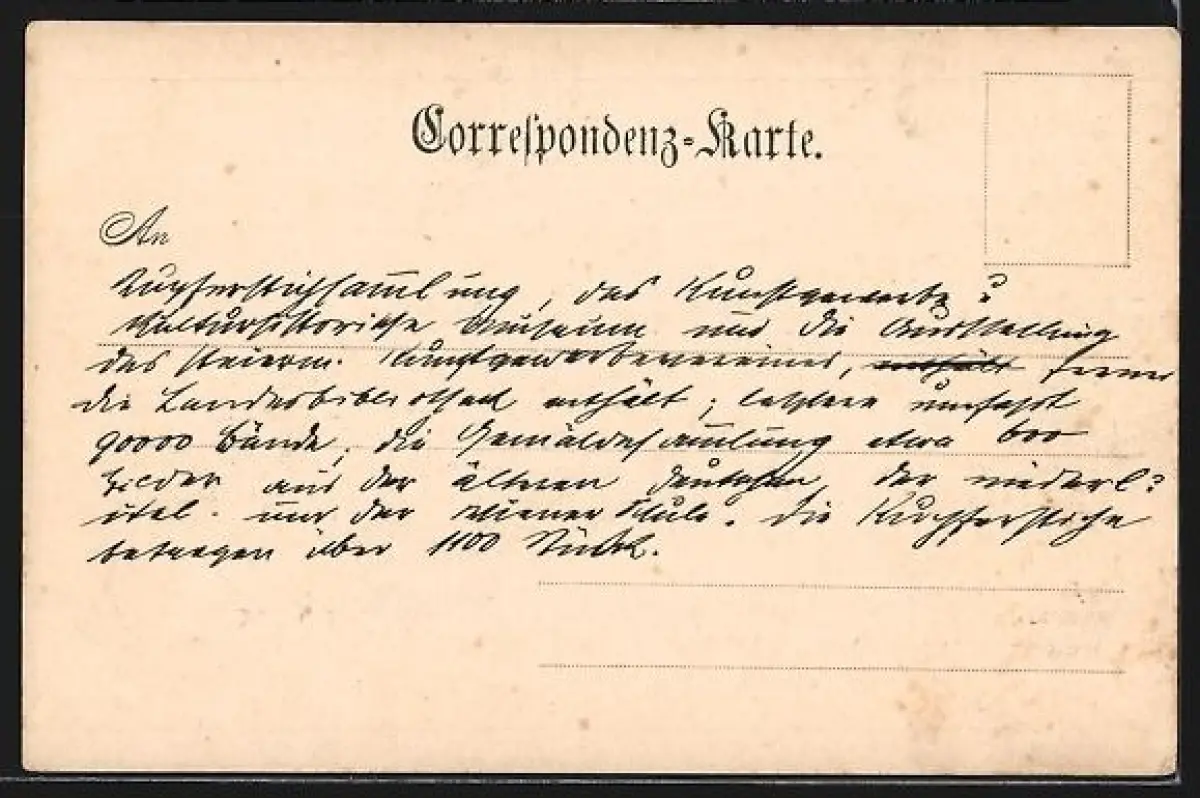 Correspondenz-Karte.
An
Kupferstichsam̅lung, das Kunstgewerbe &
kulturhistorische Museum und die Ausstellung
des steierm. Kunstgewerbevereines, enthält ferner
die Landesbibliothek enthält; letztere umfasst
90000 Bände, die Gemäldesam̅lung etwa 600
Bilder aus der älteren deutschen, der niederl.
ital. und der Wiener Schule. Die Kupferstiche
betragen über 1100 Stück.